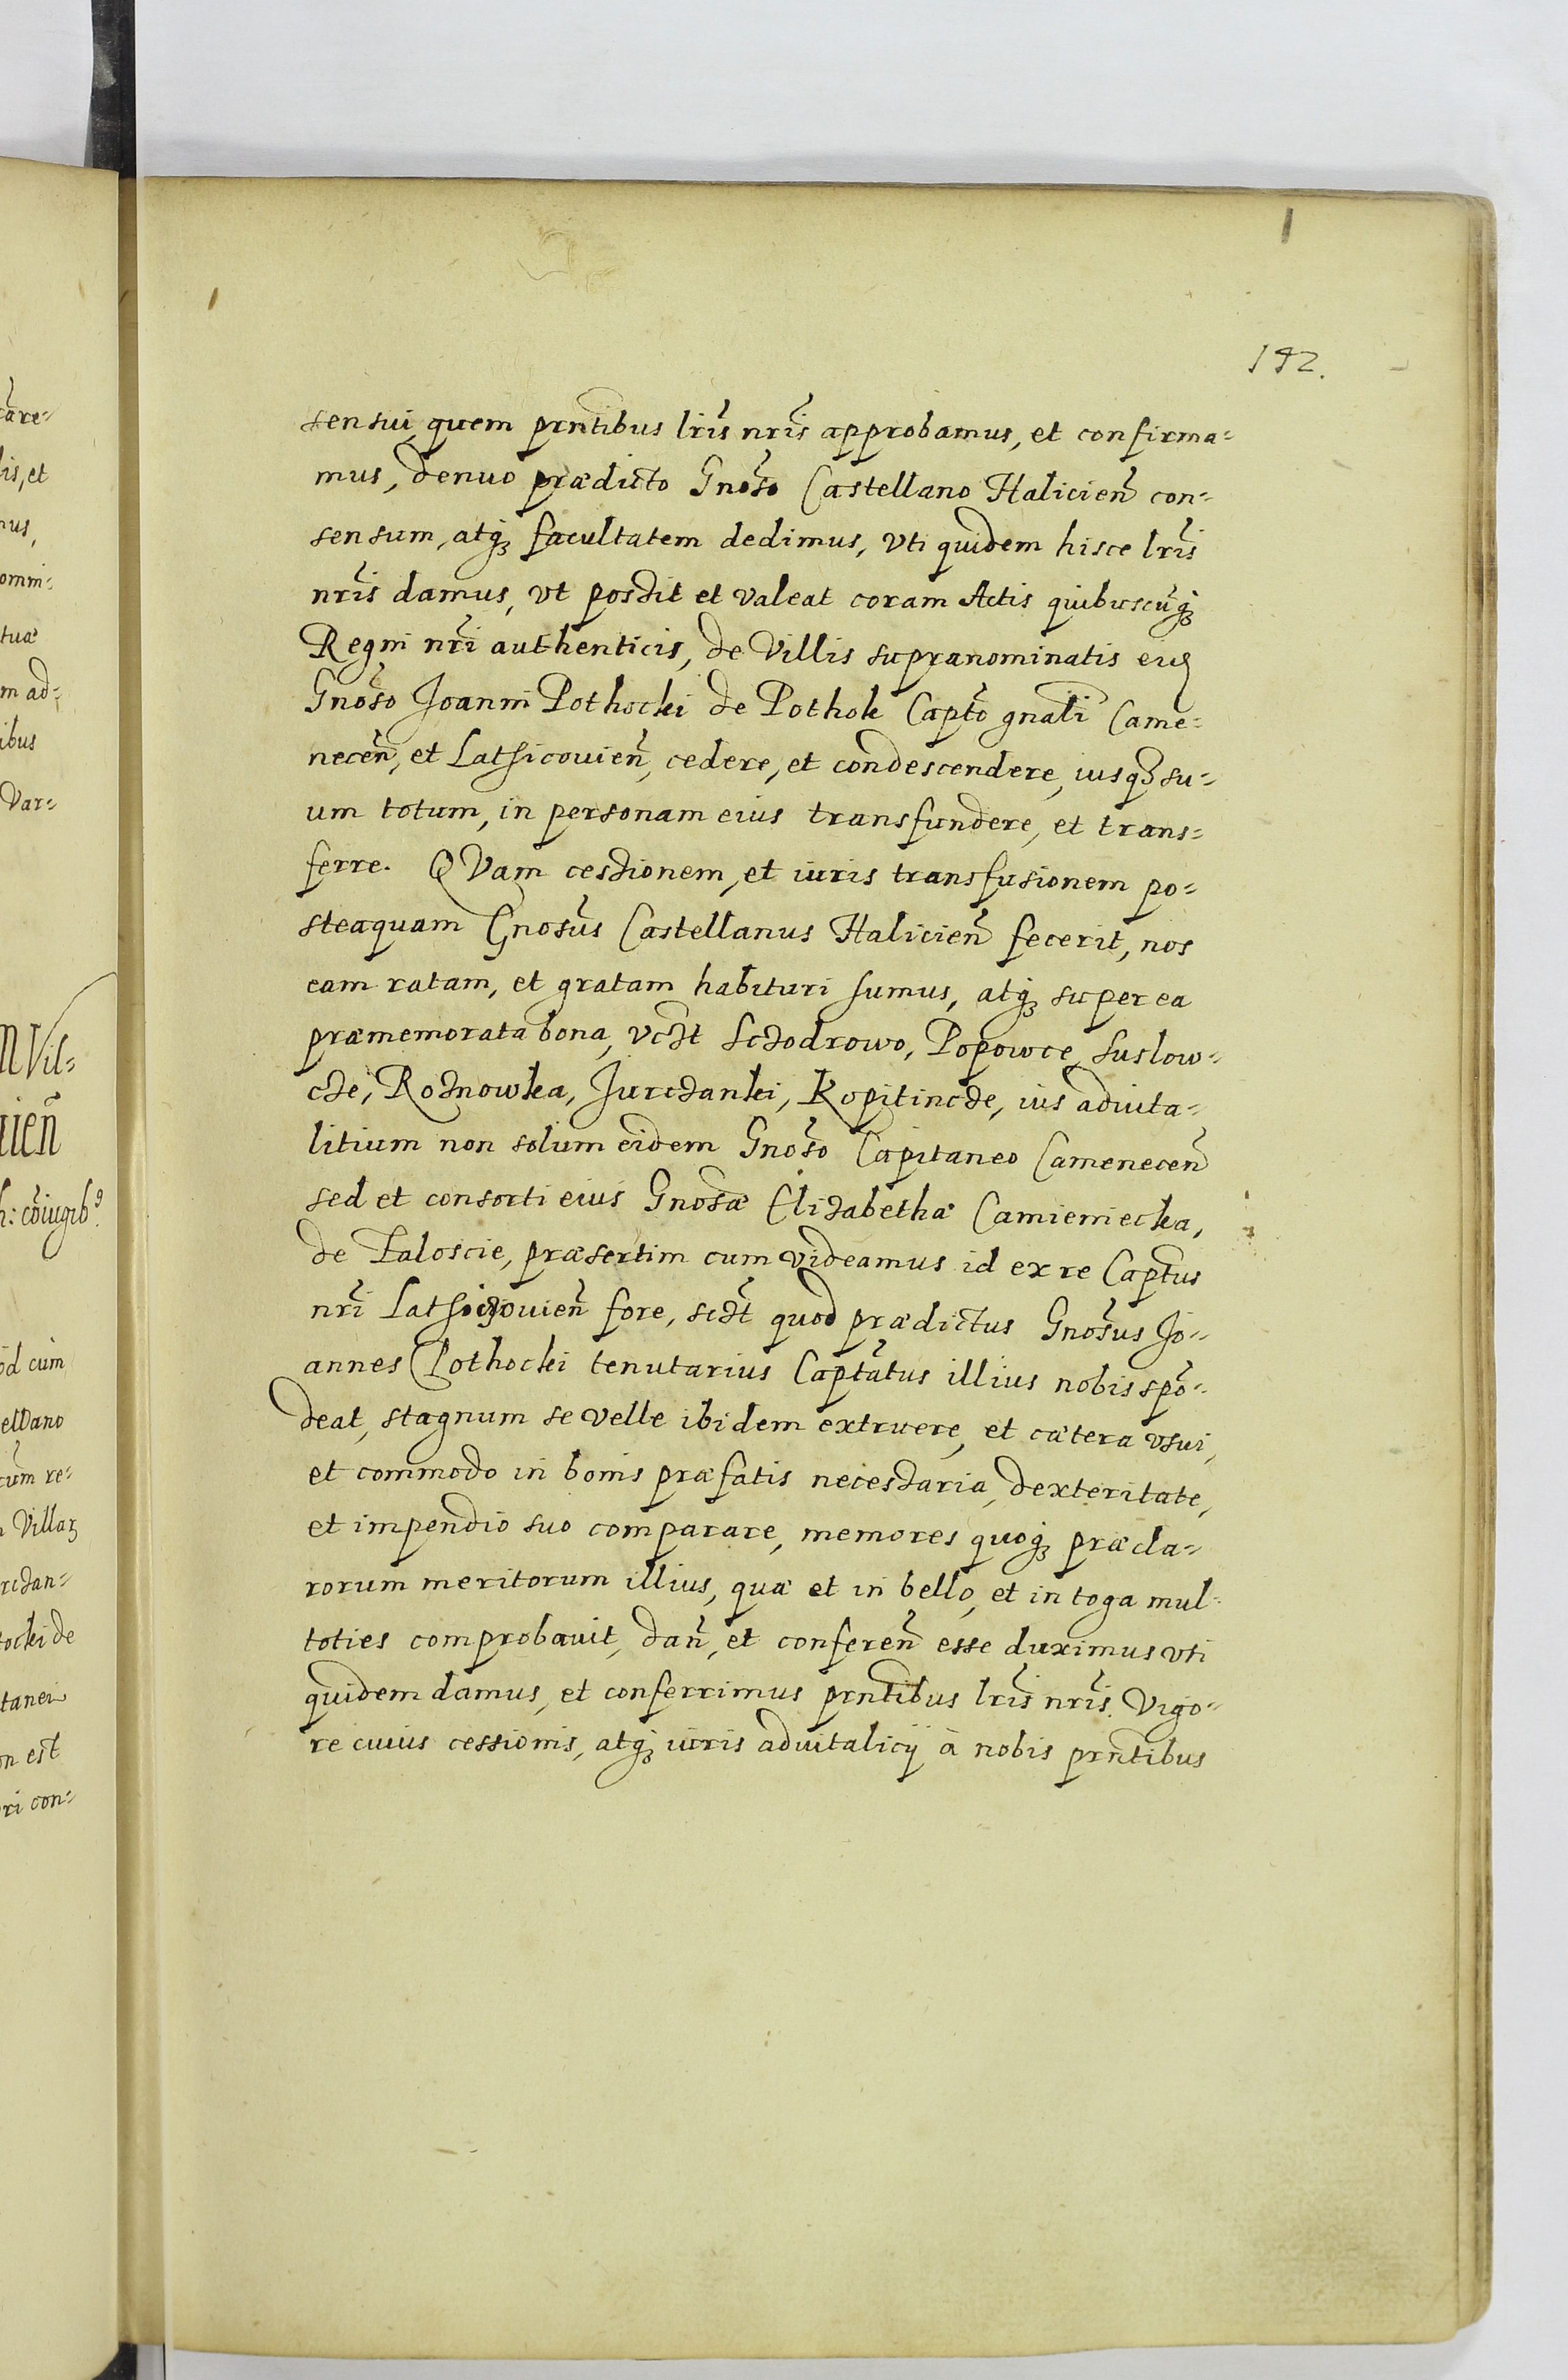 142.
sensui quem prñtibus lr̃is nr̃is approbamus, et confirma=
mus, denuo prædicto Gnõso Castellano Halicien̄ con=
sensum, atq; facultatem dedimus, vti quidem hisce lr̃is
nr̃is damus, vt possit et valeat coram Actis quibuscūq;
Regni nr̃i authenticis, de Villis supranominatis
Gnõso Joanni Pothocki de Pothok Captõ gnãli Came=
necen̄, et Lathicouien̄, cedere, et condescendere, iusq; su=
um totum, in personam eius transfundere, et trans=
ferre. QVam cessionem, et iuris transfusionem po=
steaquam Gnosũs Castellanus Halicien̄ fecerit, nos
eam ratam, et gratam habituri sumus, atq; super ea
præmemorata bona, vczt Sczodrowo, Popowce, Suslow=
cze, Roznowka, Jurczanki, Kopitincze, ius aduita=
litium non solum eidem Gnõso Capitaneo Camenecen̄
sed et consorti eius Gnosæ Elizabethæ Camieniecka,
de Taloscie, præsertim cum videamus id ex re Captus
nr̃i ouien̄ fore, sczt quod prædictus Gnosũs Jo=
annes Pothocki tenutarius Captãtus illius nobis spõ=
deat, stagnum se velle ibidem extruere, et cætera vsui,
et commodo in bonis præfatis necessaria, dexteritate,
et impendio suo comparare, memores quoq; præcla=
rorum meritorum illius, quæ et in bello, et in toga mul=
toties comprobauit, dan̄, et conferen̄ esse duximus vti
quidem damus, et conferrimus prñtibus lr̃is nr̃is. Vigo=
re cuius cessionis, atq; iuris aduitalicij à nobis prñtibus